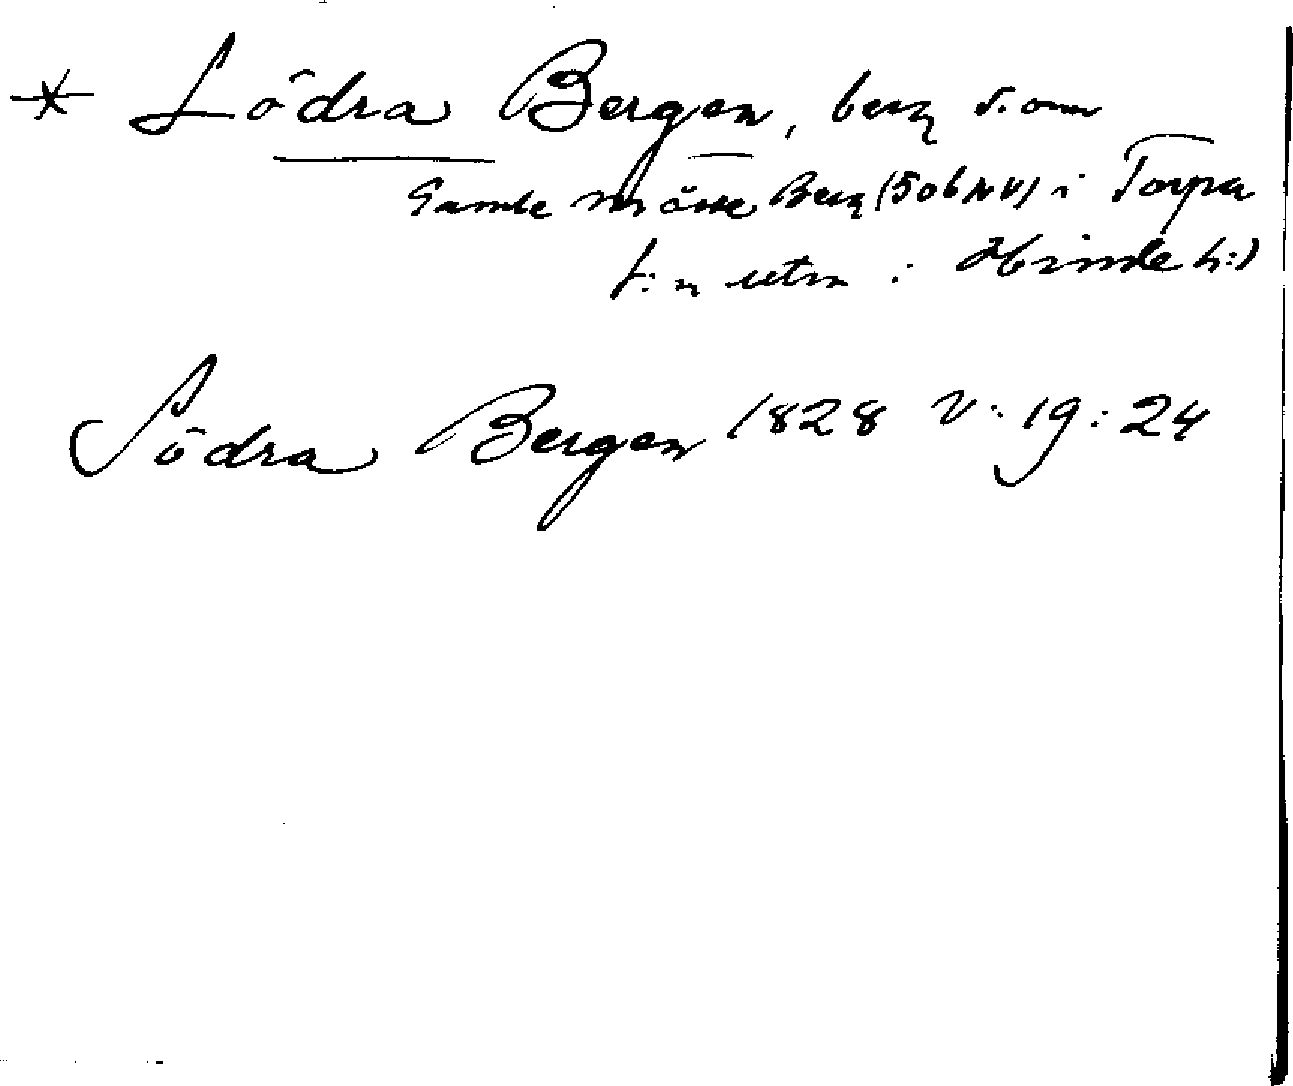 * Södra Bergen, berg s. om
Gamle Berg (506 NV) i Torpa
s:n utm i Himle h:d
Södra Bergen 1828 V: 19: 24